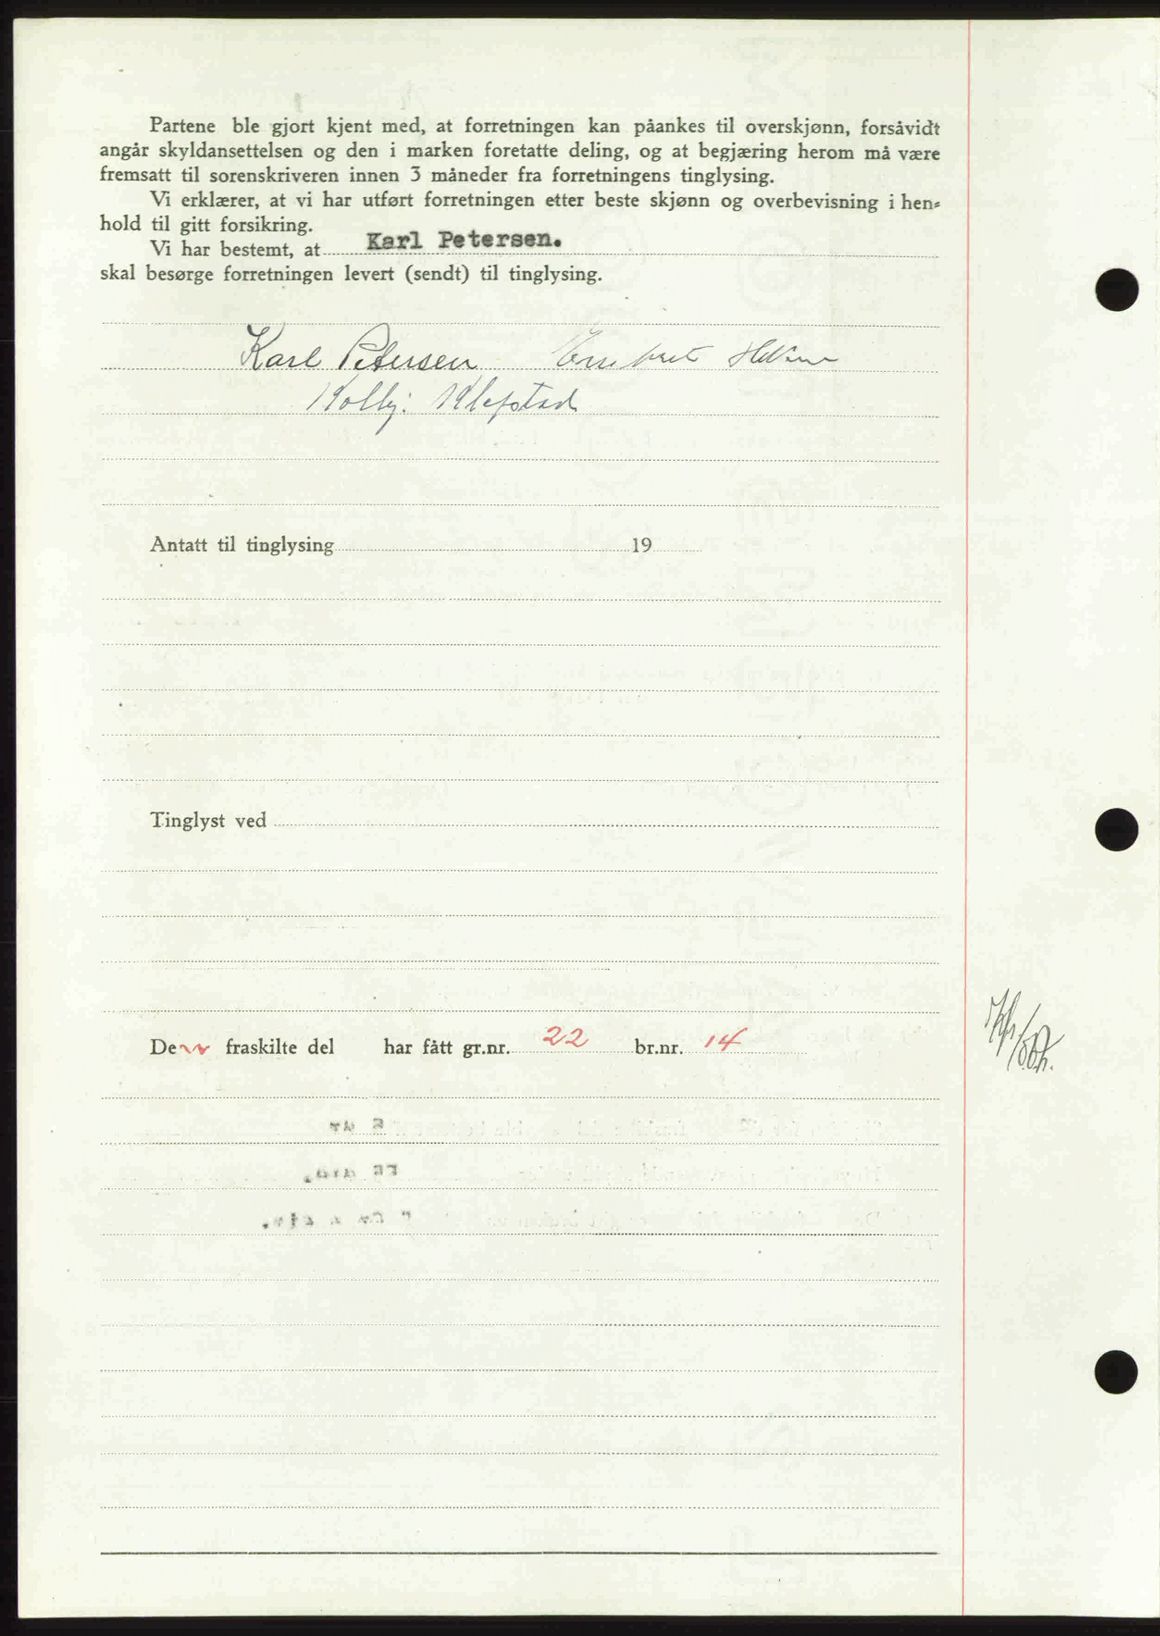 Partene ble gjort kjent med, at forretningen kan påankes til overskjønn, forsåvidt
angår skyldansettelsen og den i marken foretatte deling, og at begjæring herom må være
fremsatt til sorenskriveren innen 3 måneder fra forretningens tinglysing.
Vi erklærer, at vi har utført forretningen etter beste skjønn og overbevisning i hen-
hold til gitt forsikring.
Vi har bestemt, at Karl Petersen.
skal besørge forretningen levert (sendt) til tinglysing.
Karl Petersen
Kolbj. Klefstad
Antatt til tinglysing 19
Tinglyst ved
Den fraskilte del har fått gr.nr. 22 br.nr. 14